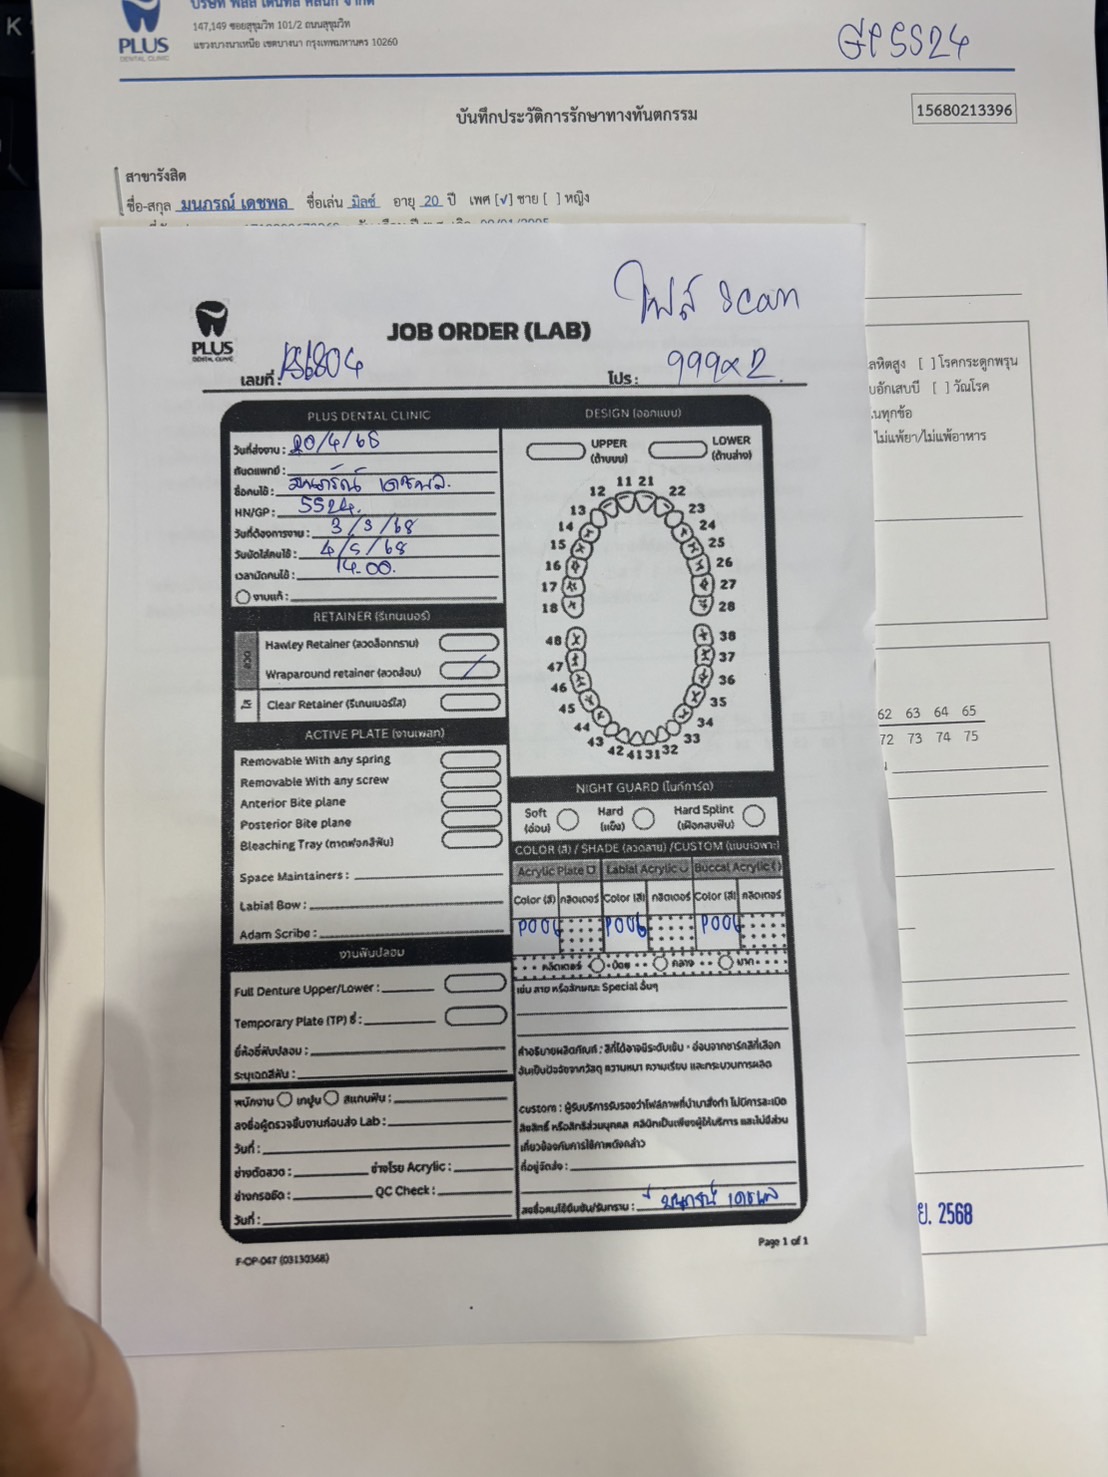 บริษัท พลัส เดนทัล คลินิก จำกัด
147,149 ซอยสุขุมวิท 101/2 ถนนสุขุมวิท
แขวงบางนาเหนือ เขตบางนา กรุงเทพมหานคร 10260
PLUS
DENTAL CLINIC
GP5524
บันทึกประวัติการรักษาทางทันตกรรม
15680213396
สาขารังสิต
ชื่อ-สกุล มนภรณ์ เดชพล ชื่อเล่น มิลช์ อายุ 20 ปี เพศ [√] ชาย [ ] หญิง
ไฟล์ scan
PLUS
DENTAL CLINIC
JOB ORDER (LAB)
เลขที่ : RS6804
โปร : 999x2
PLUS DENTAL CLINIC
วันที่ส่งงาน : 20/4/68
ทันตแพทย์ :
ชื่อคนไข้ : มนภรณ์ เดชพล
HN/GP : 5524
วันที่ต้องการงาน : 3/5/68
วันนัดใส่คนไข้ : 4/5/68
เวลานัดคนไข้ : 14.00
งานแก้ :
RETAINER (รีเทนเนอร์)
ลวด
Hawley Retainer (ลวดล็อกกราม)
Wraparound retainer (ลวดล้อม) /
ใส
Clear Retainer (รีเทนเนอร์ใส)
ACTIVE PLATE (งานเพลท)
Removable With any spring
Removable With any screw
Anterior Bite plane
Posterior Bite plane
Bleaching Tray (ถาดฟอกสีฟัน)
Space Maintainers :
Labial Bow :
Adam Scribe :
งานฟันปลอม
Full Denture Upper/Lower :
Temporary Plate (TP) ซี่ :
ยี่ห้อซี่ฟันปลอม :
ระบุเฉดสีฟัน :
พนักงาน เทปูน สแกนฟัน :
ลงชื่อผู้ตรวจชิ้นงานก่อนส่ง Lab :
วันที่ :
ช่างดัดลวด : ช่างโรย Acrylic :
ช่างกรอขัด : QC Check :
วันที่ :
DESIGN (ออกแบบ)
UPPER
(ด้านบน)
LOWER
(ด้านล่าง)
11 21
12 22
13 23
14 24
15 25
16 26
17 27
18 28
48 38
47 37
46 36
45 35
44 34
43 33
42 41 31 32
NIGHT GUARD (ไนท์การ์ด)
Soft
(อ่อน)
Hard
(แข็ง)
Hard Splint
(เฝือกสบฟัน)
COLOR (สี) / SHADE (ลวดลาย) /CUSTOM (แบบเฉพาะ)
Acrylic Plate Labial Acrylic Buccal Acrylic
Color (สี) กลิตเตอร์ Color (สี) กลิตเตอร์ Color (สี) กลิตเตอร์
P006 P006 P006
กลิตเตอร์ น้อย กลาง มาก
เช่น ลาย หรือลักษณะ Special อื่นๆ
คำอธิบายผลิตภัณฑ์ : สีที่ได้อาจมีระดับเข้ม - อ่อนจากชาร์ตสีที่เลือก
อันเป็นปัจจัยจากวัสดุ ความหนา ความเรียบ และกระบวนการผลิต
custom : ผู้รับบริการรับรองว่าไฟล์ภาพที่นำมาสั่งทำ ไม่มีการละเมิด
ลิขสิทธิ์ หรือสิทธิส่วนบุคคล คลินิกเป็นเพียงผู้ให้บริการ และไม่มีส่วน
เกี่ยวข้องกับการใช้ภาพดังกล่าว
ที่อยู่จัดส่ง :
ลงชื่อคนไข้ยืนยัน/รับทราบ : มนภรณ์ เดชพล
F-OP-047 (03130368)
Page 1 of 1
ลหิตสูง [ ] โรคกระดูกพรุน
บอักเสบบี [ ] วัณโรค
ไม่แพ้ยา/ไม่แพ้อาหาร
62 63 64 65
72 73 74 75
ย. 2568